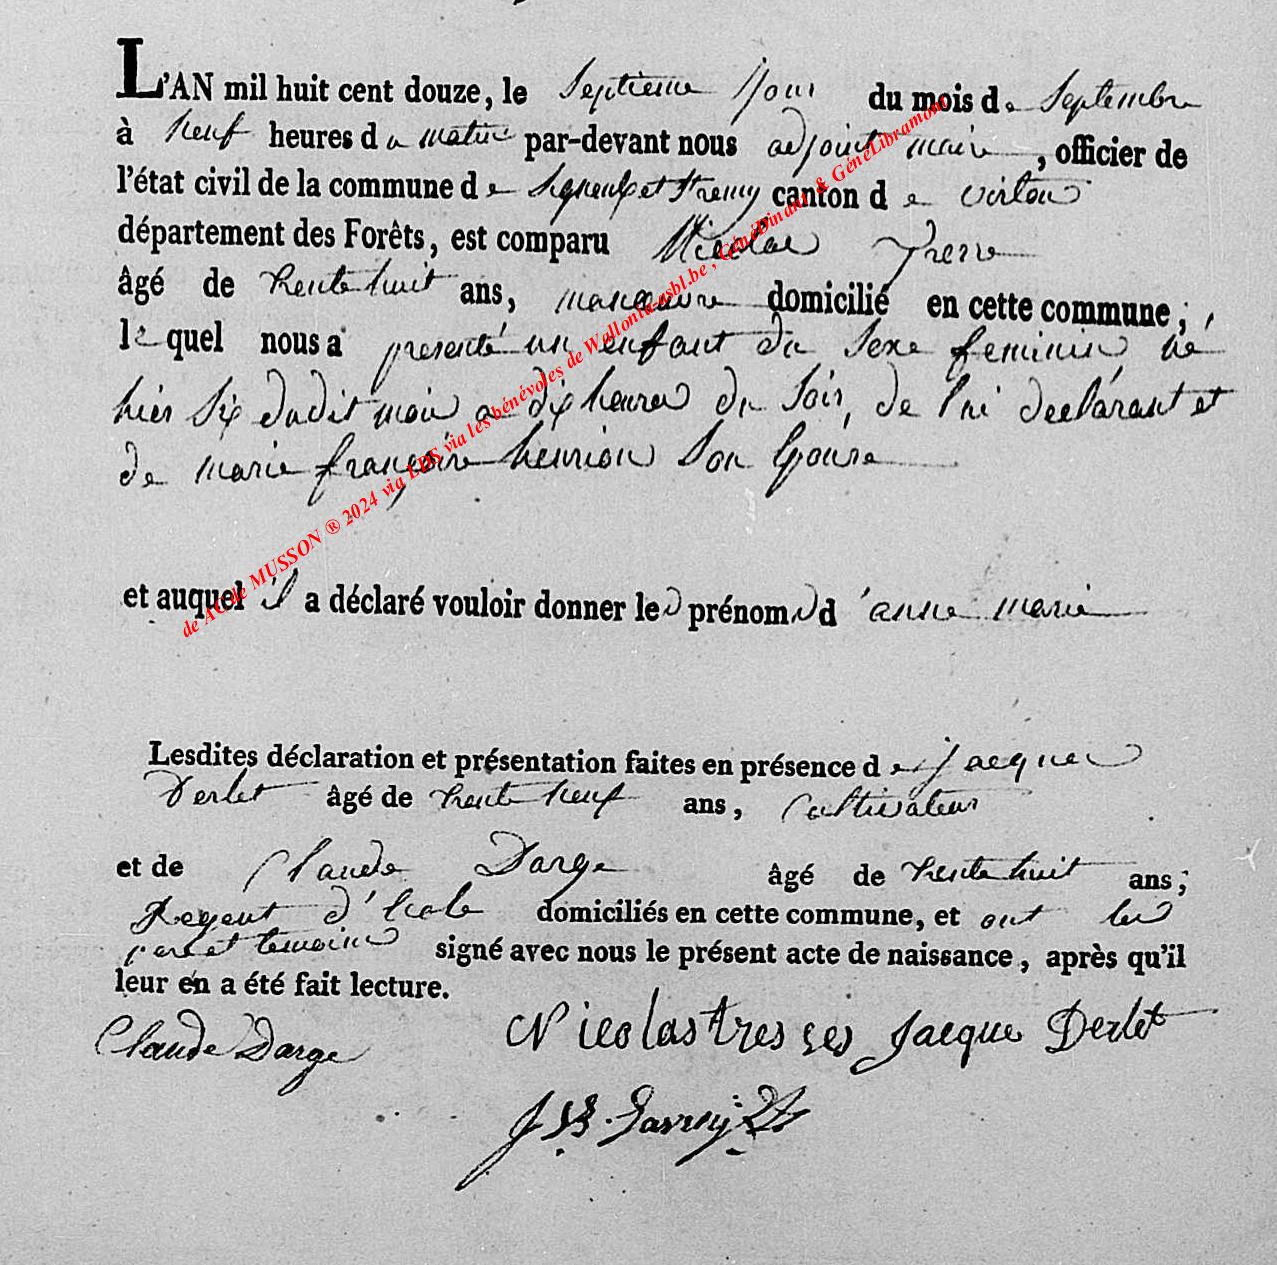 L'AN mil huit cent douze, le Septieme Jour du mois de Septembre
à neuf heures du matin par-devant nous adjoint maire, officier de
l'état civil de la commune de Signeulx et Stremy canton de virton
département des Forêts, est comparu Nicolas
âgé de trente huit ans, manoeuvre domicilié en cette commune;
lequel nous a presenté un enfant du Sexe feminin né
hier Six dudit mois a dix heures du Soir, de lui declarant et
de marie françoise henrion Son Epouse
et auquel il a déclaré vouloir donner les prénoms d'anne marie
Lesdites déclaration et présentation faites en présence de jacques
Derlet âgé de trente neuf ans, Cultivateur
et de Claude Darge âgé de trente huit ans;
Regent d'Ecole domiciliés en cette commune, et ont les
pere et temoins signé avec nous le présent acte de naissance, après qu'il
leur en a été fait lecture.
Claude Darge Nicolas Jacque Derlet
J B.
de AC de MUSSON ® 2024 via LDS via les bénévoles de Wallonia-asbl.be, GénéDinant & GénéLibramont